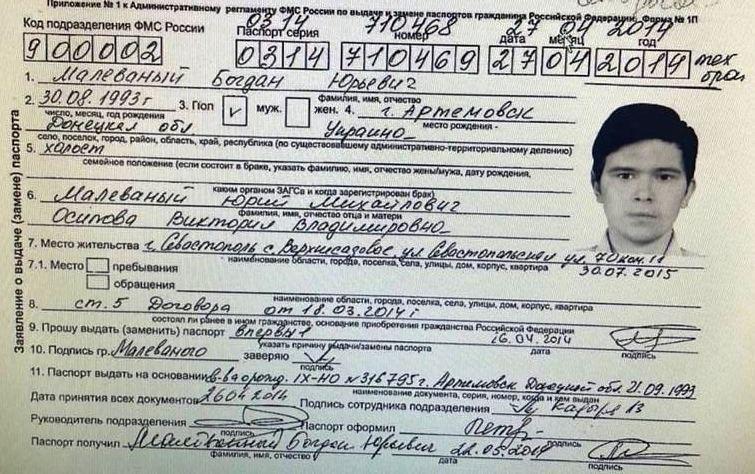 Приложение № 1 к Административному регламенту ФМС России по выдаче и замене паспортов гражданина Российской Федерации. Форма № 1П
0314 710468 27 04 2014
Код подразделения ФМС России Паспорт серия номер дата месяц год
900002 0314 710469 27 04 2019 тех брак
1. Малеваный Богдан Юрьевич
фамилия, имя, отчество
2. 30.08.1993г 3. Пол ✓ муж. жен. 4. г. Артемовск
число, месяц, год рождения место рождения -
Донецкая обл Украина
село, поселок, город, район, область, край, республика (по существовавшему административно-территориальному делению)
5. холост
семейное положение (если состоит в браке, указать фамилию, имя, отчество жены/мужа, дату рождения,
каким органом ЗАГСа и когда зарегистрирован брак)
6. Малеваный Юрий Михайлович
фамилия, имя, отчество отца и матери
Осипова Виктория Владимировна
7. Место жительства г. Севастополь с. Верхнесадовое, ул Севастопольская ул. 70 ком. 11
наименование области, города, поселка, села, улицы, дом, корпус, квартира
30.07.2015
7.1. Место пребывания
обращения
наименование области, города, поселка, села, улицы, дом, корпус, квартира
8. ст. 5 Договора от 18.03.2014г
состоял ли ранее в ином гражданстве, основание приобретения гражданства Российской Федерации
9. Прошу выдать (заменить) паспорт впервые 26.04.2014
указать причину выдачи/замены паспорта дата подпись
10. Подпись гр. Малеваного заверяю
подпись
11. Паспорт выдать на основании св-ва о рожд. IX-НО №316795 г. Артемовск Донецкой обл. 21.09.1993
наименование документа, серия, номер, когда и кем выдан
Дата принятия всех документов 26.04.2014 Подпись сотрудника подразделения
Руководитель подразделения Паспорт оформил
подпись подпись
Паспорт получил Малеванный Богдан Юрьевич 22.05.2014
фамилия, имя, отчество дата подпись
Заявление о выдаче (замене) паспорта